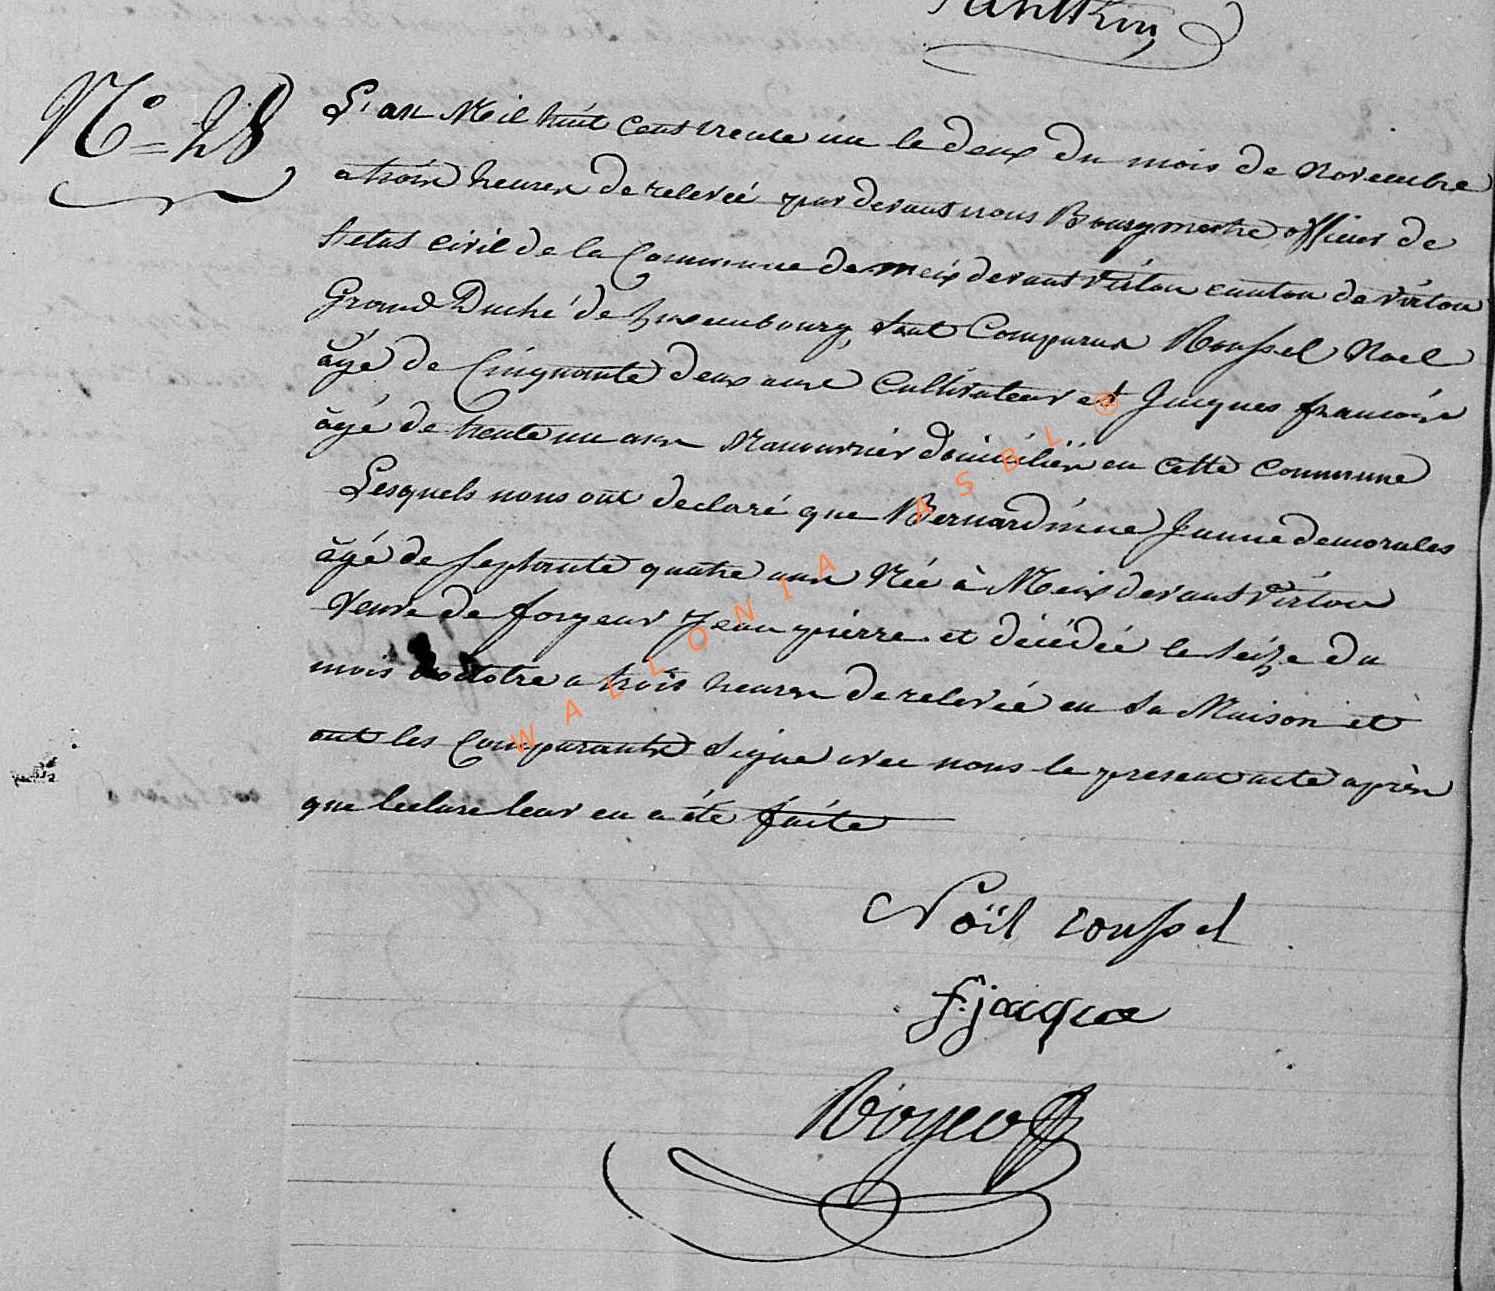 N° 28
L'an Mil huit Cent trente un le deux du mois de Novembre
a trois heures de relevée par devant nous Bourgmestre officier de
l'etat civil de la Commune de meix devant virton canton de virton
Grand Duché de Luxembourg, Sont Comparus Roussel Noel
âgé de Cinquante deux ans Cultivateur et Jacques francois
âgé de trente un ans Manouvrier domiciliés en cette commune
Lesquels nous ont declaré que Bernardinne Jeanne demorales
âgé de septante quatre ans Née à Meix devant virton
Veuve de forgeur Jean pierre et décédée le seize du
mois d'octobre a trois heures de relevée en sa Maison et
ont les Comparants Signe avec nous le present acte après
que lecture leur en a été faite
Noël roussel
f. jacque
WALLONIA ASBL ®